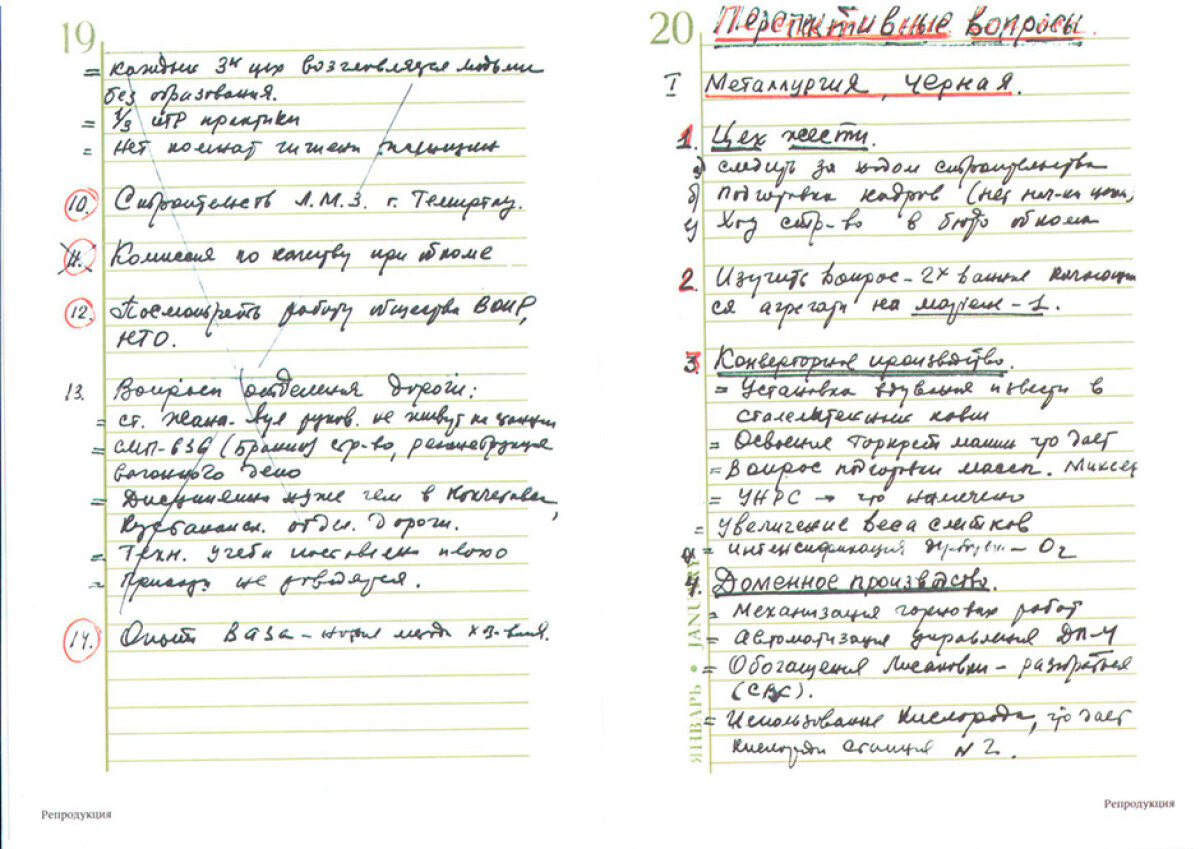 19
= каждый 3й цех возглавляется людьми
без образования.
= 1/3 ИТР практики
= Нет комнат гигиены женщин
10. Строительств Л.М.З. г. Темиртау.
11. Комиссия по качеству при обкоме
12. Посмотреть работу общества ВОИР,
НТО.
13. Вопросы отделения дороги:
= ст. Жана-аул руков. не живут на станции
= СМП-636 стр-во, реконструкция
вагонного депо
= Дисциплина хуже чем в Кокчетавск,
отдел. дороги.
= Техн. учеба поставлена плохо
= Приказы не доводятся.
14. Опыт ВАЗа – новые методы хоз-вания.
Репродукция
20
Перспективные вопросы.
I Металлургия, черная.
1. Цех жести.
а) следить за ходом строительства
б) Подготовка кадров (нет нач-ка цеха)
в) Ход стр-во в бюро обкома
2. Изучить вопрос – 2х ванные качающи
ся агрегаты на мартене – 1.
3. Конверторное производство.
= Установка вдувания извести в
сталеплавильные ковши
= Освоение торкрет машин что дает
= Вопрос подготовки массы. Миксер
= УНРС → что намечено
= Увеличение веса слитков
= интенсификация продувки – O2
4. Доменное производство.
= Механизация горновых работ
= Автоматизация управления ДП-4
= Обогащения Лисаковки – разобраться
= Использование кислорода, что дает
кислородн станция N 2.
ЯНВАРЬ • JANUARY
Репродукция